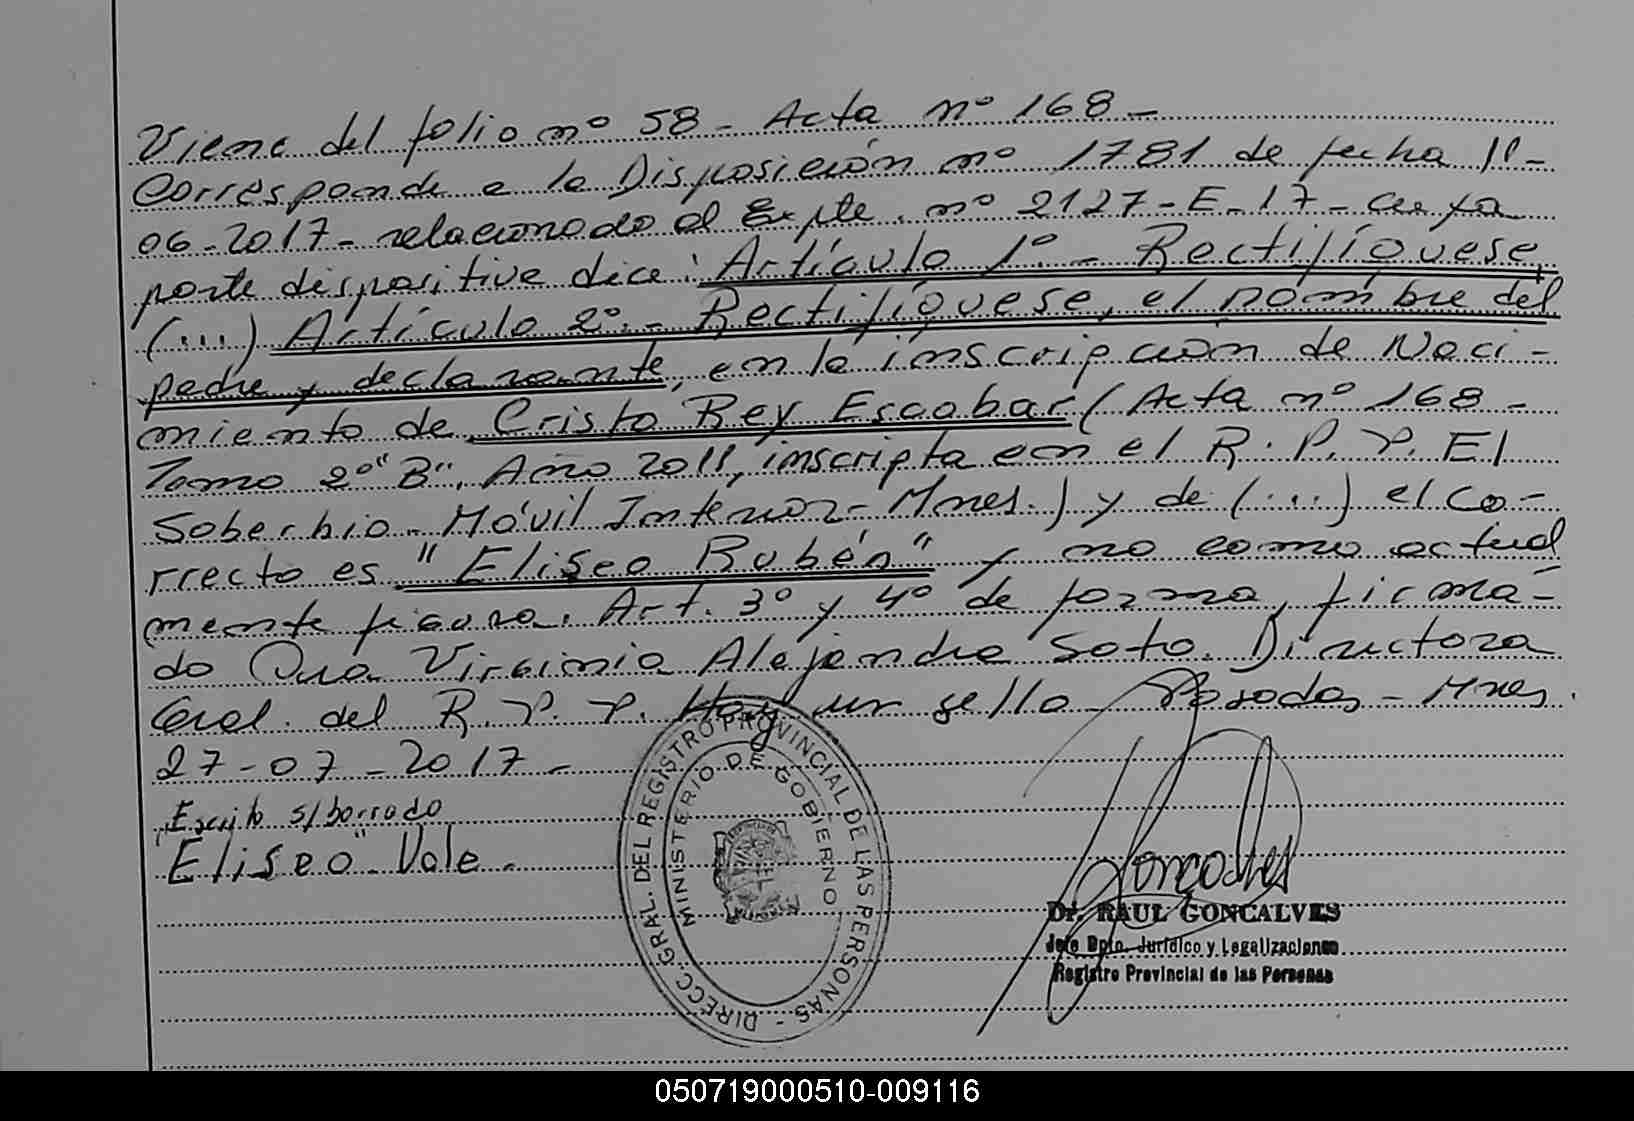 Viene del folio nº 58 - Acta nº 168 -
Corresponde a la Disposición nº 1781 de fecha 11-
06-2017- relacionado al Expte. nº 2127-E-17- cuya
parte dispositiva dice: Artículo 1º.- Rectifíquese,
(...) Artículo 2º.- Rectifíquese, el nombre del
padre y declarante, en la inscripción de Naci-
miento de Cristo Rey Escobar (Acta nº 168 -
Tomo 2º "B", Año 2011, inscripta en el R. P. P. El
Soberbio - Móvil Interior - Mnes.) y de (...) el co-
rrecto es "Eliseo Rubén" y no como actual
mente figura. Art. 3º y 4º de forma, firma-
do Dra. Virginia Alejandra Soto. Directora
Gral. del R. P. P. Hay un sello - Posadas - Mnes.
27-07-2017 -
Escrito s/borrado
"Eliseo" Vale -
DIRECC. GRAL. DEL REGISTRO PROVINCIAL DE LAS PERSONAS -
MINISTERIO DE GOBIERNO
Dr. RAUL GONCALVES
Jefe Dpto. Jurídico y Legalizaciones
Registro Provincial de las Personas
050719000510-009116